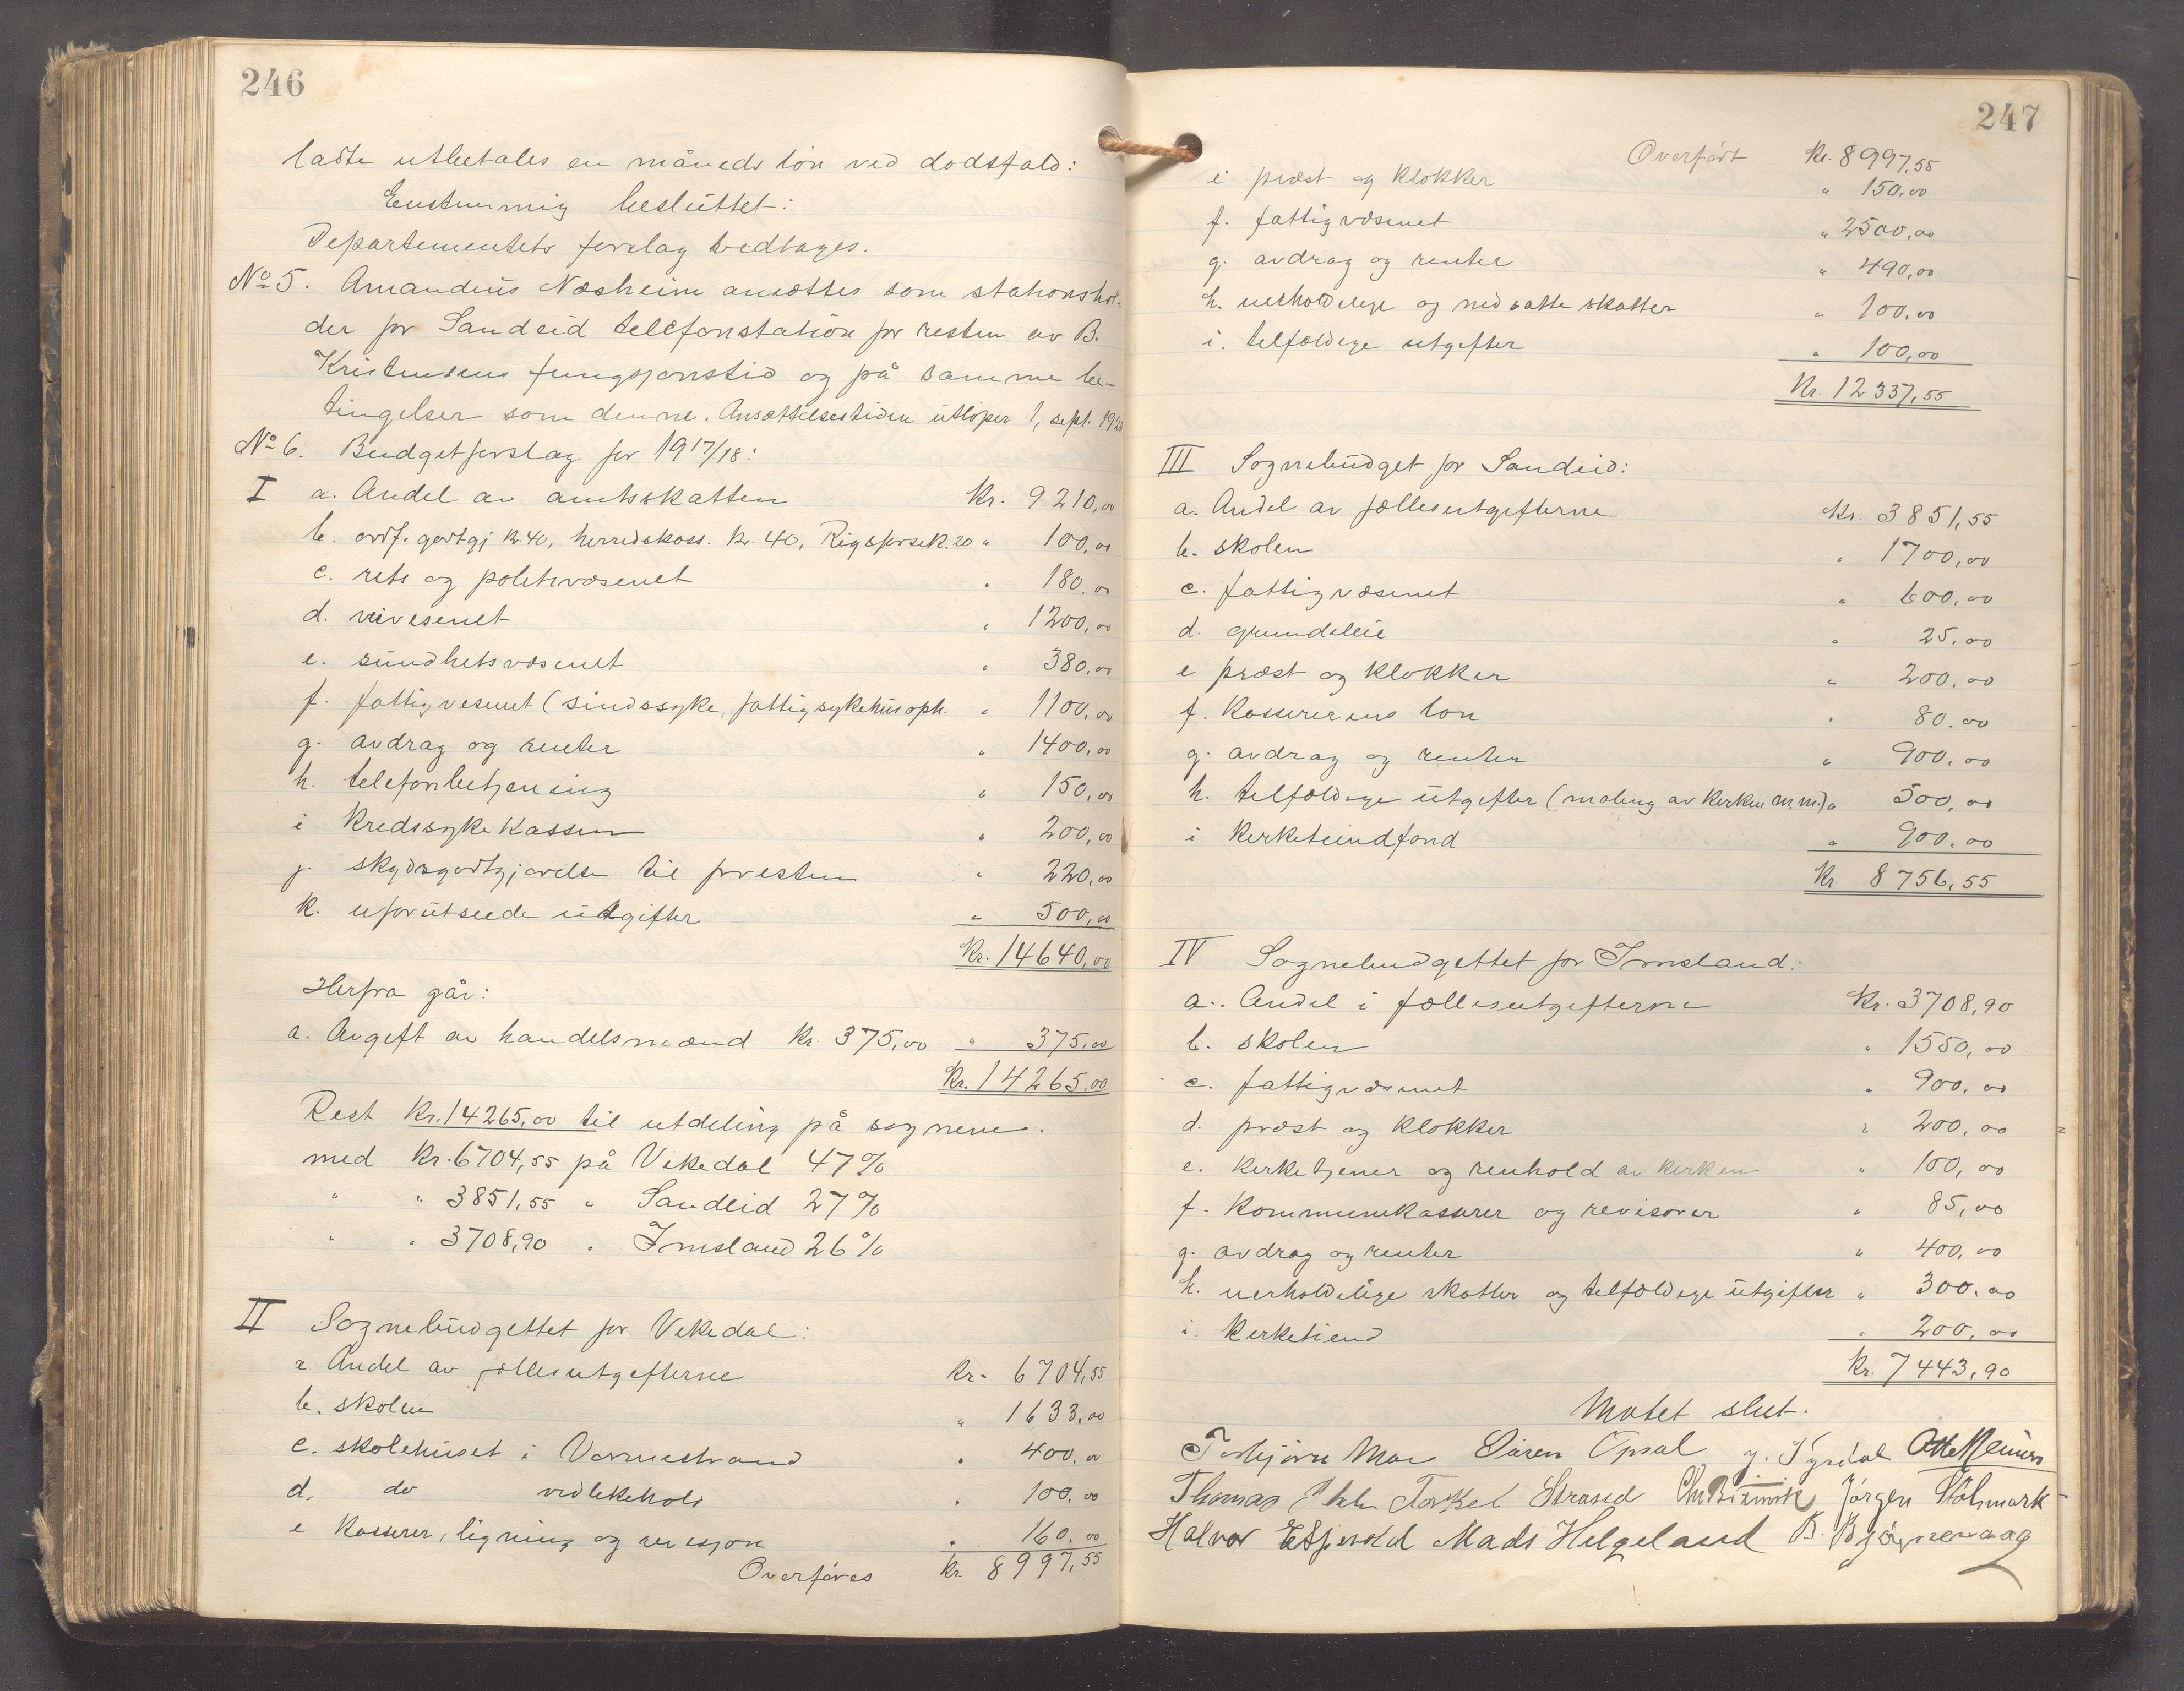 246
ladte utbetales en måneds løn ved dødsfald:
Enstemmig besluttet:
Departementets forslag vedtages.
No 5. Amandus Næsheim ansættes som stationshol-
der for Sandeid telefonstation for resten av B.
Kristensens fungsjonstid og på samme be-
tingelser som denne. Ansættelsestiden utløper 1, sept. 192
No 6. Budgetforslag for 1917/18:
I a. Andel av amtsskatten Kr. 9210,00
b. ordf. godtgj kr 40, herredskass. kr. 40, Rigsforsek. 20 " 100,00
c. rets og politivæsenet " 180,00
d. veivesenet " 1200,00
e. sundhetsvæsenet " 380,00
f. fattigvesenet (sindssyke, fattigsykehusoph. " 1100,00
g. avdrag og renter " 1400,00
h. telefonbetjening " 150,00
i Kredssykekassen " 200,00
j. skydsgodtgjørelse til presten " 220,00
k. uforutseede utgifter " 500,00
Kr. 14640,00
Herfra går:
a. Avgift av handelsmænd Kr. 375,00 " 375,00
Kr. 14265,00
Rest Kr. 14265,00 til utdeling på sognene.
med Kr. 6704,55 på Vikedal 47%
" " 3851,55 " Sandeid 27%
" " 3708,90 " Imsland 26%
II Sognebudgettet for Vikedal:
a Andel av fællesutgifterne Kr. 6704,55
b. skolen " 1633,00
c. skolehuset i Vormestrand " 400,00
d. do vedlikehold " 100,00
e Kasserer, ligning og revisjon " 160,00
Overføres Kr. 8997,55
247
Overført Kr. 8997,55
e præst og klokker " 150,00
f. fattigvæsenet " 2500,00
g. avdrag og renter " 490,00
h. uerholdelige og nedsatte skatter " 100,00
i. tilfældige utgifter " 100,00
Kr. 12337,55
III Sognebudget for Sandeid:
a. Andel av fællesutgifterne Kr. 3851,55
b. skolen " 1700,00
c. fattigvæsenet " 600,00
d. grundleie " 25,00
e præst og klokker " 200,00
f. Kassererens løn " 80,00
g. avdrag og renter " 900,00
h. tilfældige utgifter (maling av kirken m.m.) " 500,00
i kirketiendfond " 900,00
Kr. 8756,55
IV Sognebudgettet for Imsland:
a. Andel i fællesutgifterne Kr. 3708,90
b. skolen " 1550,00
c. fattigvæsenet " 900,00
d. præst og klokker " 200,00
e. kirketjener og renhold av kirken " 100,00
f. Kommunekasserer og revisorer " 85,00
g. avdrag og renter " 400,00
h. uerholdelige skatter og tilfældige utgifter " 300,00
i. Kirketiend " 200,00
Kr. 7443,90
Møtet slut.
Torbjørn Mæ Søren Opsal
Thomas Torkel Straned Jørgen Stølsmark
Halvor Espevold Mads Helgeland B. Bjørnevaag